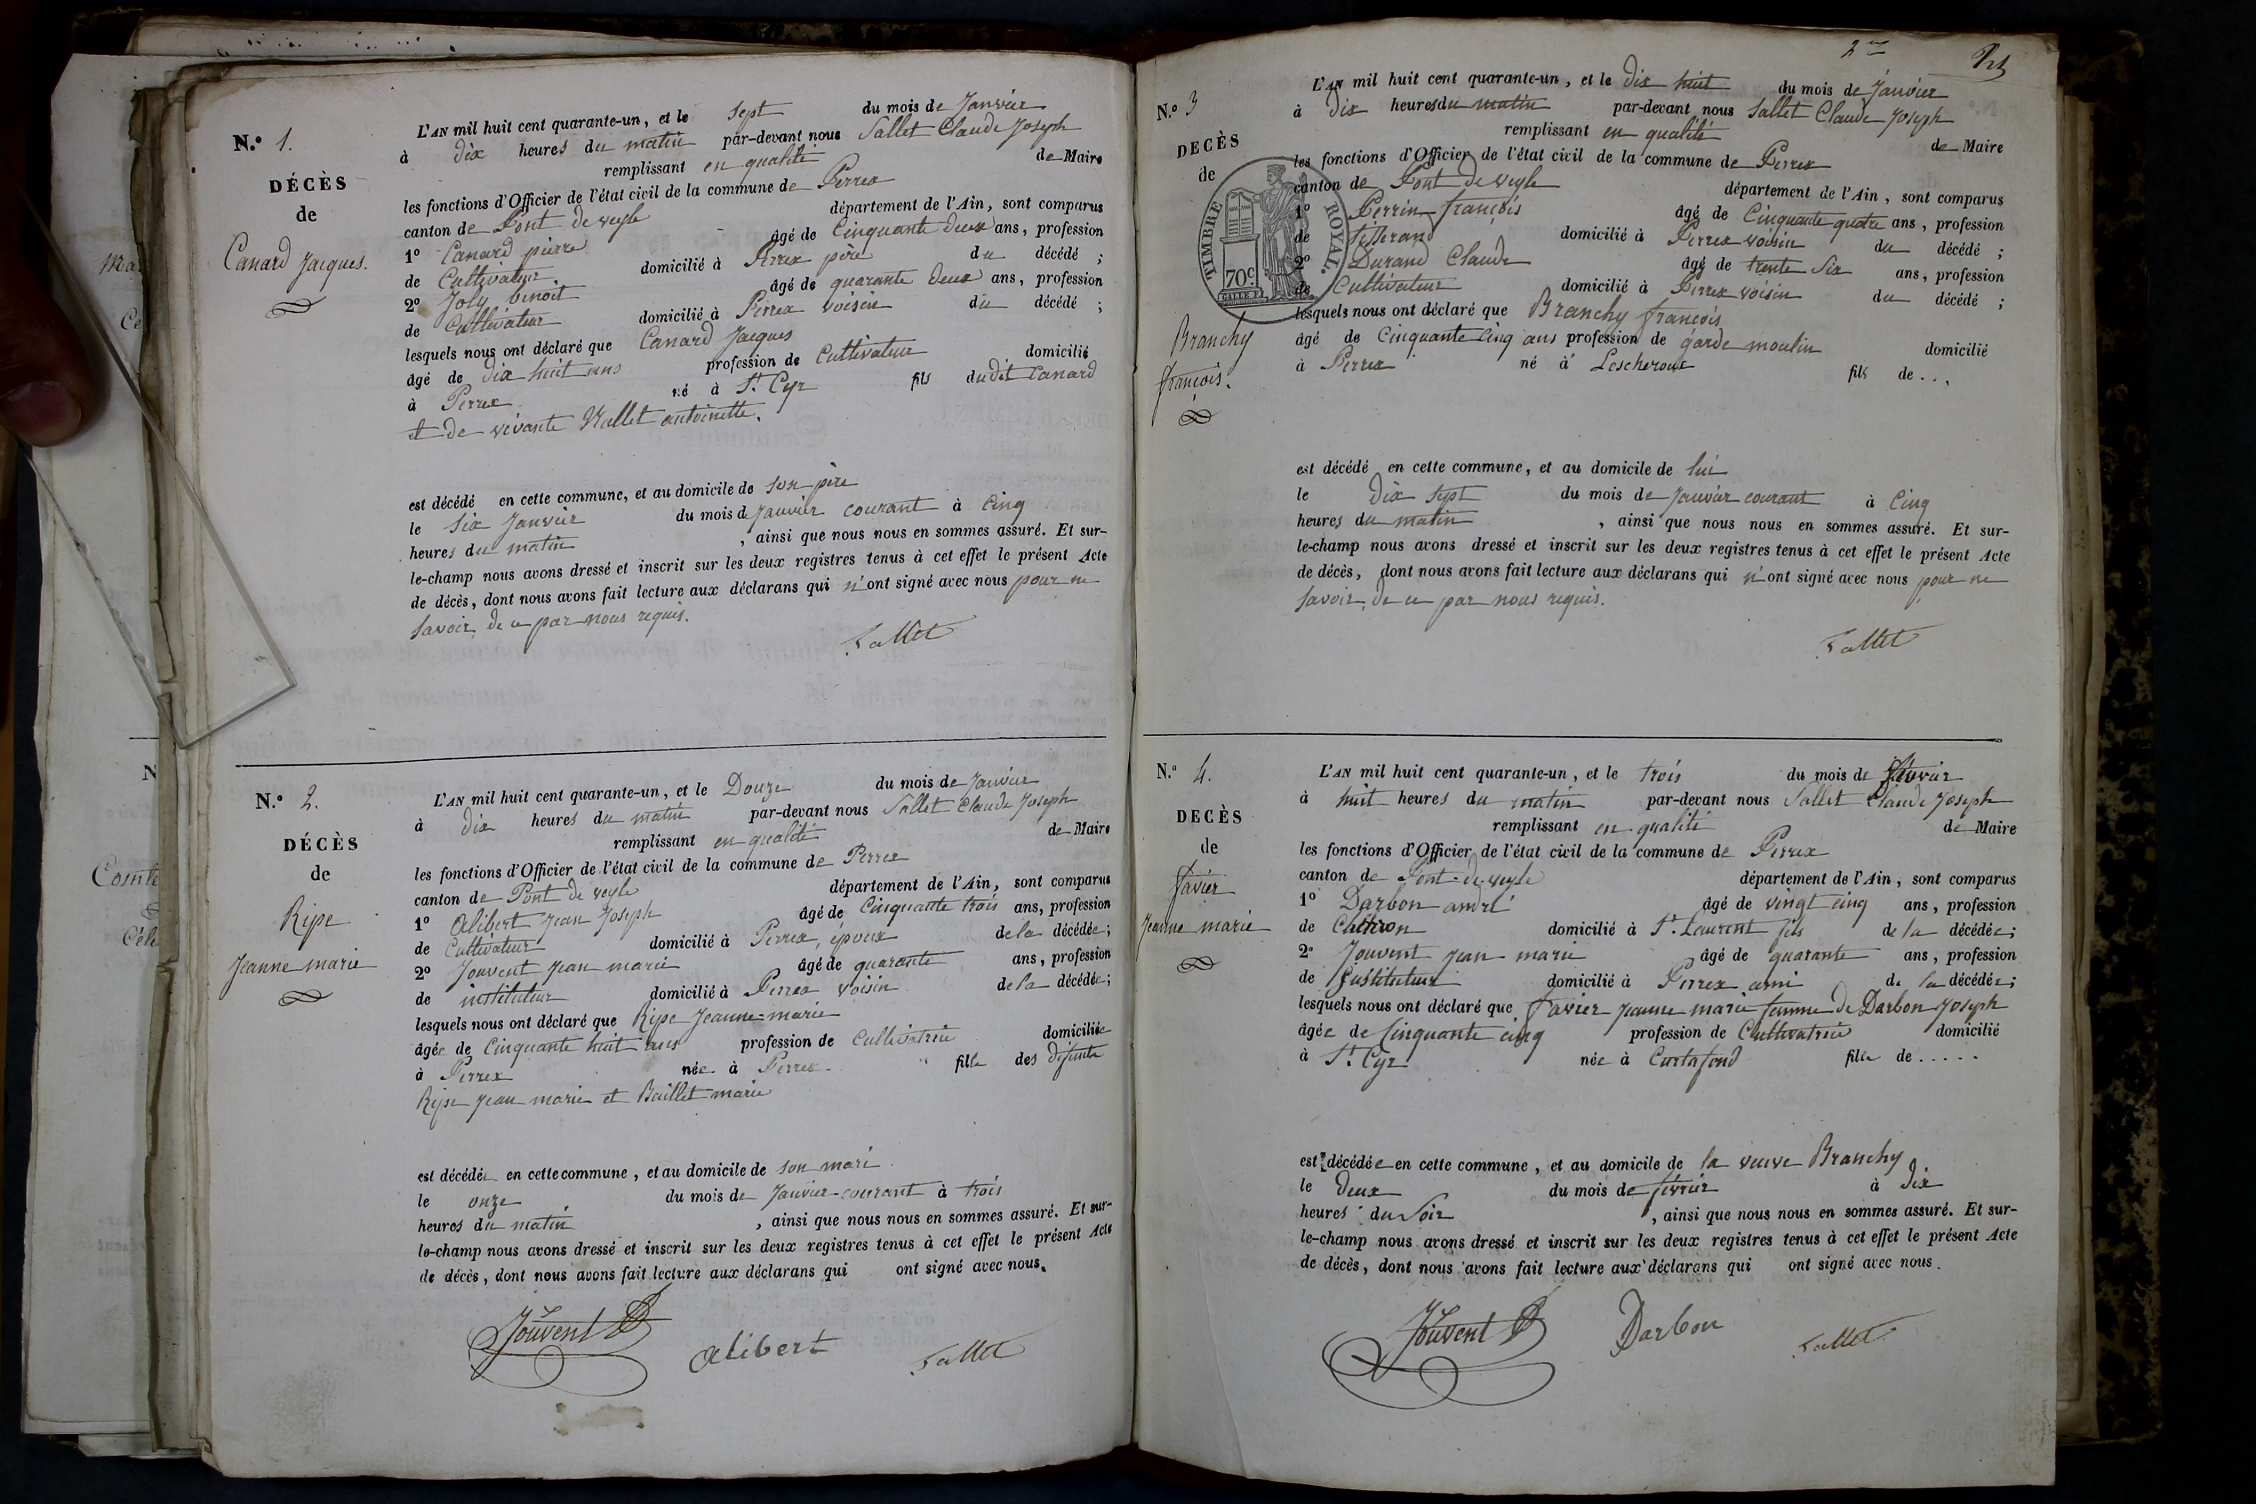 N.º 1.
DÉCÈS
de
Canard Jacques.
L'AN mil huit cent quarante-un, et le sept du mois de Janvier
à dix heures du matin par-devant nous Sallet Claude Joseph
remplissant en qualité de Maire
les fonctions d'Officier de l'état civil de la commune de Perrex
canton de Pont de veyle département de l'Ain, sont comparus
1º Canard pierre âgé de Cinquante deux ans, profession
de Cultivateur domicilié à Perrex père du décédé ;
2º Joly benoit âgé de quarante deux ans, profession
de Cultivateur domicilié à Perrex voisin du décédé ;
lesquels nous ont déclaré que Canard Jacques
âgé de dix huit ans profession de Cultivateur domicilié
à Perrex né à St Cyr fils dudit Canard
et de vivante Mallet antoinette.
est décédé en cette commune, et au domicile de son père
le six Janvier du mois de Janvier courant à Cinq
heures du matin , ainsi que nous nous en sommes assuré. Et sur-
le-champ nous avons dressé et inscrit sur les deux registres tenus à cet effet le présent Acte
de décès, dont nous avons fait lecture aux déclarans qui n'ont signé avec nous pour ne
savoir, de ce par nous requis.
Sallet
N.º 2.
DÉCÈS
de
Ripe
Jeanne marie
L'AN mil huit cent quarante-un, et le Douze du mois de Janvier
à dix heures du matin par-devant nous Sallet Claude Joseph
remplissant en qualité de Maire
les fonctions d'Officier de l'état civil de la commune de Perrex
canton de Pont de veyle département de l'Ain, sont comparus
1º Alibert Jean Joseph âgé de Cinquante trois ans, profession
de Cultivateur domicilié à Perrex, époux de la décédée;
2º Jouvent Jean marie âgé de quarante ans, profession
de instituteur domicilié à Perrex voisin de la décédée;
lesquels nous ont déclaré que Ripe Jeanne-marie
âgée de Cinquante huit ans profession de Cultivatrice domiciliée
à Perrex née à Perrex fille des défunts
Ripe Jean marie et Baillet marie
est décédée en cette commune, et au domicile de son mari
le onze du mois de Janvier courant à trois
heures du matin , ainsi que nous nous en sommes assuré. Et sur-
le-champ nous avons dressé et inscrit sur les deux registres tenus à cet effet le présent Acte
de décès, dont nous avons fait lecture aux déclarans qui ont signé avec nous.
Jouvent
Alibert
Sallet
N.º 3
DECÈS
de
Branchy
françois.
TIMBRE ROYAL.
70c
L'AN mil huit cent quarante-un, et le dix huit du mois de Janvier
à dix heures du matin par-devant nous Sallet Claude Joseph
remplissant en qualité de Maire
les fonctions d'Officier de l'état civil de la commune de Perrex
canton de Pont de veyle département de l'Ain, sont comparus
1º Perrin françois âgé de Cinquante quatre ans, profession
de tisserand domicilié à Perrex voisin du décédé ;
2º Durand Claude âgé de trente Six ans, profession
de Cultivateur domicilié à Perrex voisin du décédé ;
lesquels nous ont déclaré que Branchy françois
âgé de Cinquante Cinq ans profession de garde moulin domicilié
à Perrex né à Lescheroux fils de ...
est décédé en cette commune, et au domicile de lui
le dix sept du mois de Janvier courant à Cinq
heures du matin , ainsi que nous nous en sommes assuré. Et sur-
le-champ nous avons dressé et inscrit sur les deux registres tenus à cet effet le présent Acte
de décès, dont nous avons fait lecture aux déclarans qui n'ont signé avec nous pour ne
savoir, de ce par nous requis.
Sallet
N.º 4.
DECÈS
de
favier
Jeanne marie
L'AN mil huit cent quarante-un, et le trois du mois de février
à huit heures du matin par-devant nous Sallet Claude Joseph
remplissant en qualité de Maire
les fonctions d'Officier de l'état civil de la commune de Perrex
canton de Pont-de-veyle département de l'Ain, sont comparus
1º Darbon andré âgé de vingt cinq ans, profession
de domicilié à St Laurent fils de la décédée;
2º Jouvent Jean marie âgé de quarante ans, profession
de Instituteur domicilié à Perrex ami de la décédée;
lesquels nous ont déclaré que favier Jeanne marie femme de Darbon Joseph
âgée de Cinquante cinq profession de Cultivatrice domicilié
à St Cyr née à Curtafond fille de .....
est décédée en cette commune, et au domicile de la veuve Branchy
le Deux du mois de février à dix
heures du Soir , ainsi que nous nous en sommes assuré. Et sur-
le-champ nous avons dressé et inscrit sur les deux registres tenus à cet effet le présent Acte
de décès, dont nous avons fait lecture aux déclarans qui ont signé avec nous.
Jouvent
Darbon
Sallet